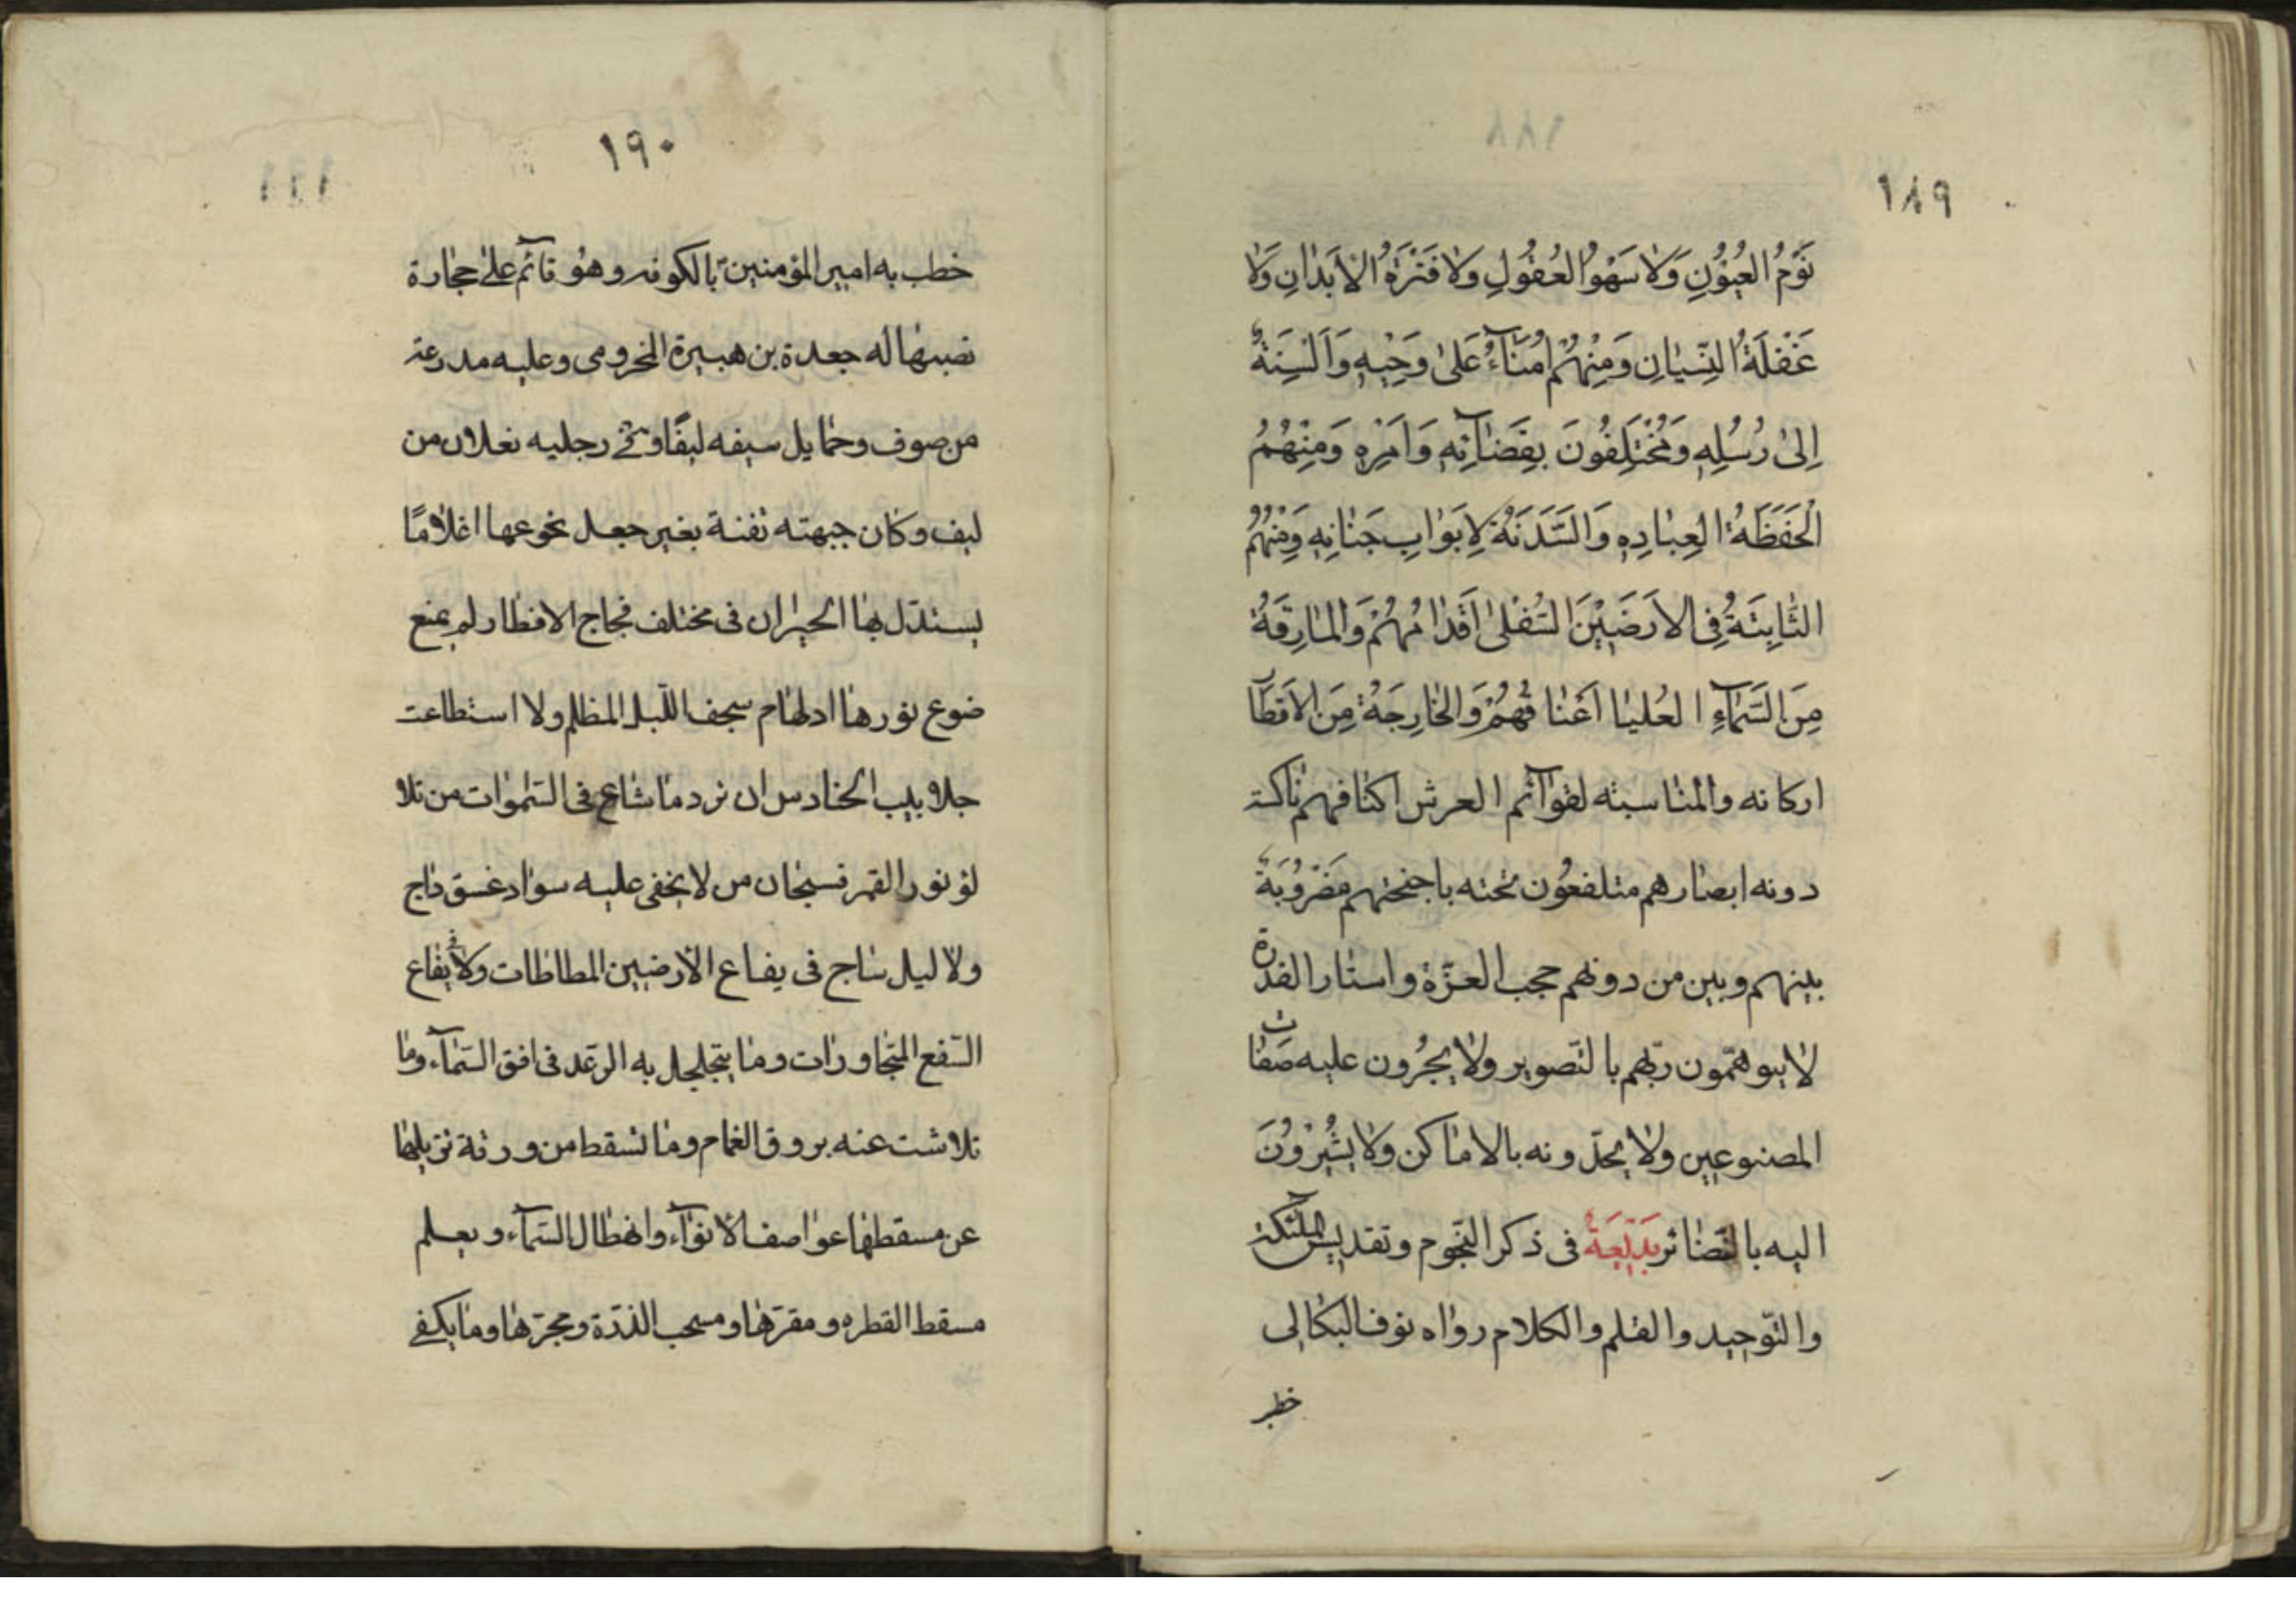 ١٨٩
نَوْمُ العُيُوْنِ وَلا سَهْوُ العُقُولِ وَلا فَتْرَةُ الاَبَدانِ وَلا
غَفْلَةُ النِّسْيانِ وَمِنْهُمْ اُمَنَآءُ عَلىٰ وَحْيِهِ وَاَلْسِنَةٌ
اِلىٰ رُسُلِهِ وَمُخْتَلِفُونَ بِقَضَآئِهِ وَاَمْرِهِ وَمِنْهُمُ
الْحَفَظَةُ لِعِبادِهِ وَالسَّدَنَةُ لِاَبَوابِ جَنانِهِ وَمِنْهُمُ
الثّابِتَةُ فِى الاَرَضَيْنَ السُّفْلىٰ اَقَدامُهُمْ وَالمارِقَةُ
مِنَ السَّمآءِ العُليا اَعْناقُهُمْ وَالخارِجَةُ مِنَ الاَقطارِ
اركانه والمناسبته لقوآئم العرش اكنافهم ناكسة
دونه ابصارهم متلفعُون تحته باجنحتهم مَضْرُوْبَةٌ
بينهم وبين من دونهم حجب العزّة واستار القدرة
لا يتوهّمون ربّهم بالتّصوير ولا يجُرون عليه صفات
المصنوعين ولا يحدّونه بالاماكن ولا يشُيْرُوْنَ
اليه بالنّضائر بَدِيْعَةٌ فى ذكر النّجوم وتقديس الملئكة
والتّوحيد والقلم والكلام رواه نوف البكالى
خطب
١٩٠
خطب به امير المؤمنين بالكوفه وهو قآئم على حجارة
نصبها له جعدة بن هبيرة المخزومى وعليه مدرعة
من صوف وحمايل سيفه ليفًا وفى رجليه نعلان من
ليف وكان جبهته ثفنة بغير جعل نجومها اعلامًا
يستدّل بها الحيران فى مختلف فجاج الاقطار لم يمنع
ضوء نورها ادلهام سجف اللّيل المظلم ولا استطاعت
جلابيب الحنادس ان ترد ما شاع فى السّموات من تلا
لؤ نور القمر فسبحان من لا يخفى عليه سواد غسق داج
ولا ليل ساج فى يفاع الارضين المطاطات ولا فى يفاع
السّفع المتجاورات وما يتجلجل به الرّعد فى افق السّمآء وما
تلاشت عنه بروق الغمام وما تسقط من ورقة تزيلها
عن مسقطها عواصف الانوآء وانهطال السّمآء ويعلم
مسقط القطره ومقرّها ومسحب الذرّة ومجرّها وما يكفى